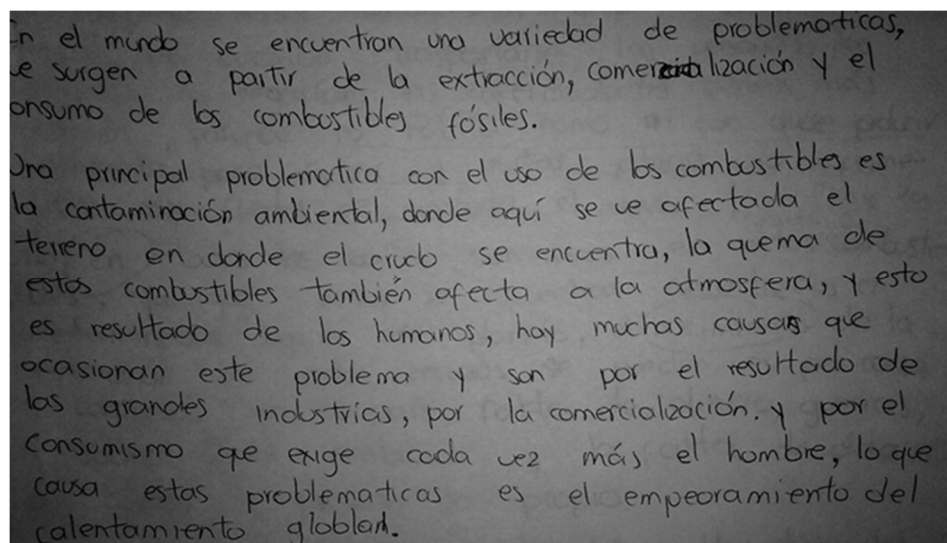 En el mundo se encuentran una variedad de problematicas,
e surgen a partir de la extracción, comercialización y el
onsumo de los combustibles fósiles.
Una principal problematica con el uso de los combustibles es
la contaminación ambiental, donde aquí se ve afectada el
terreno en donde el crudo se encuentra, la quema de
estos combustibles también afecta a la atmosfera, y esto
es resultado de los humanos, hay muchas causas que
ocasionan este problema y son por el resultado de
las grandes industrias, por la comercialización. y por el
consumismo que exige cada vez más el hombre, lo que
causa estas problematicas es el empeoramiento del
calentamiento globlan.